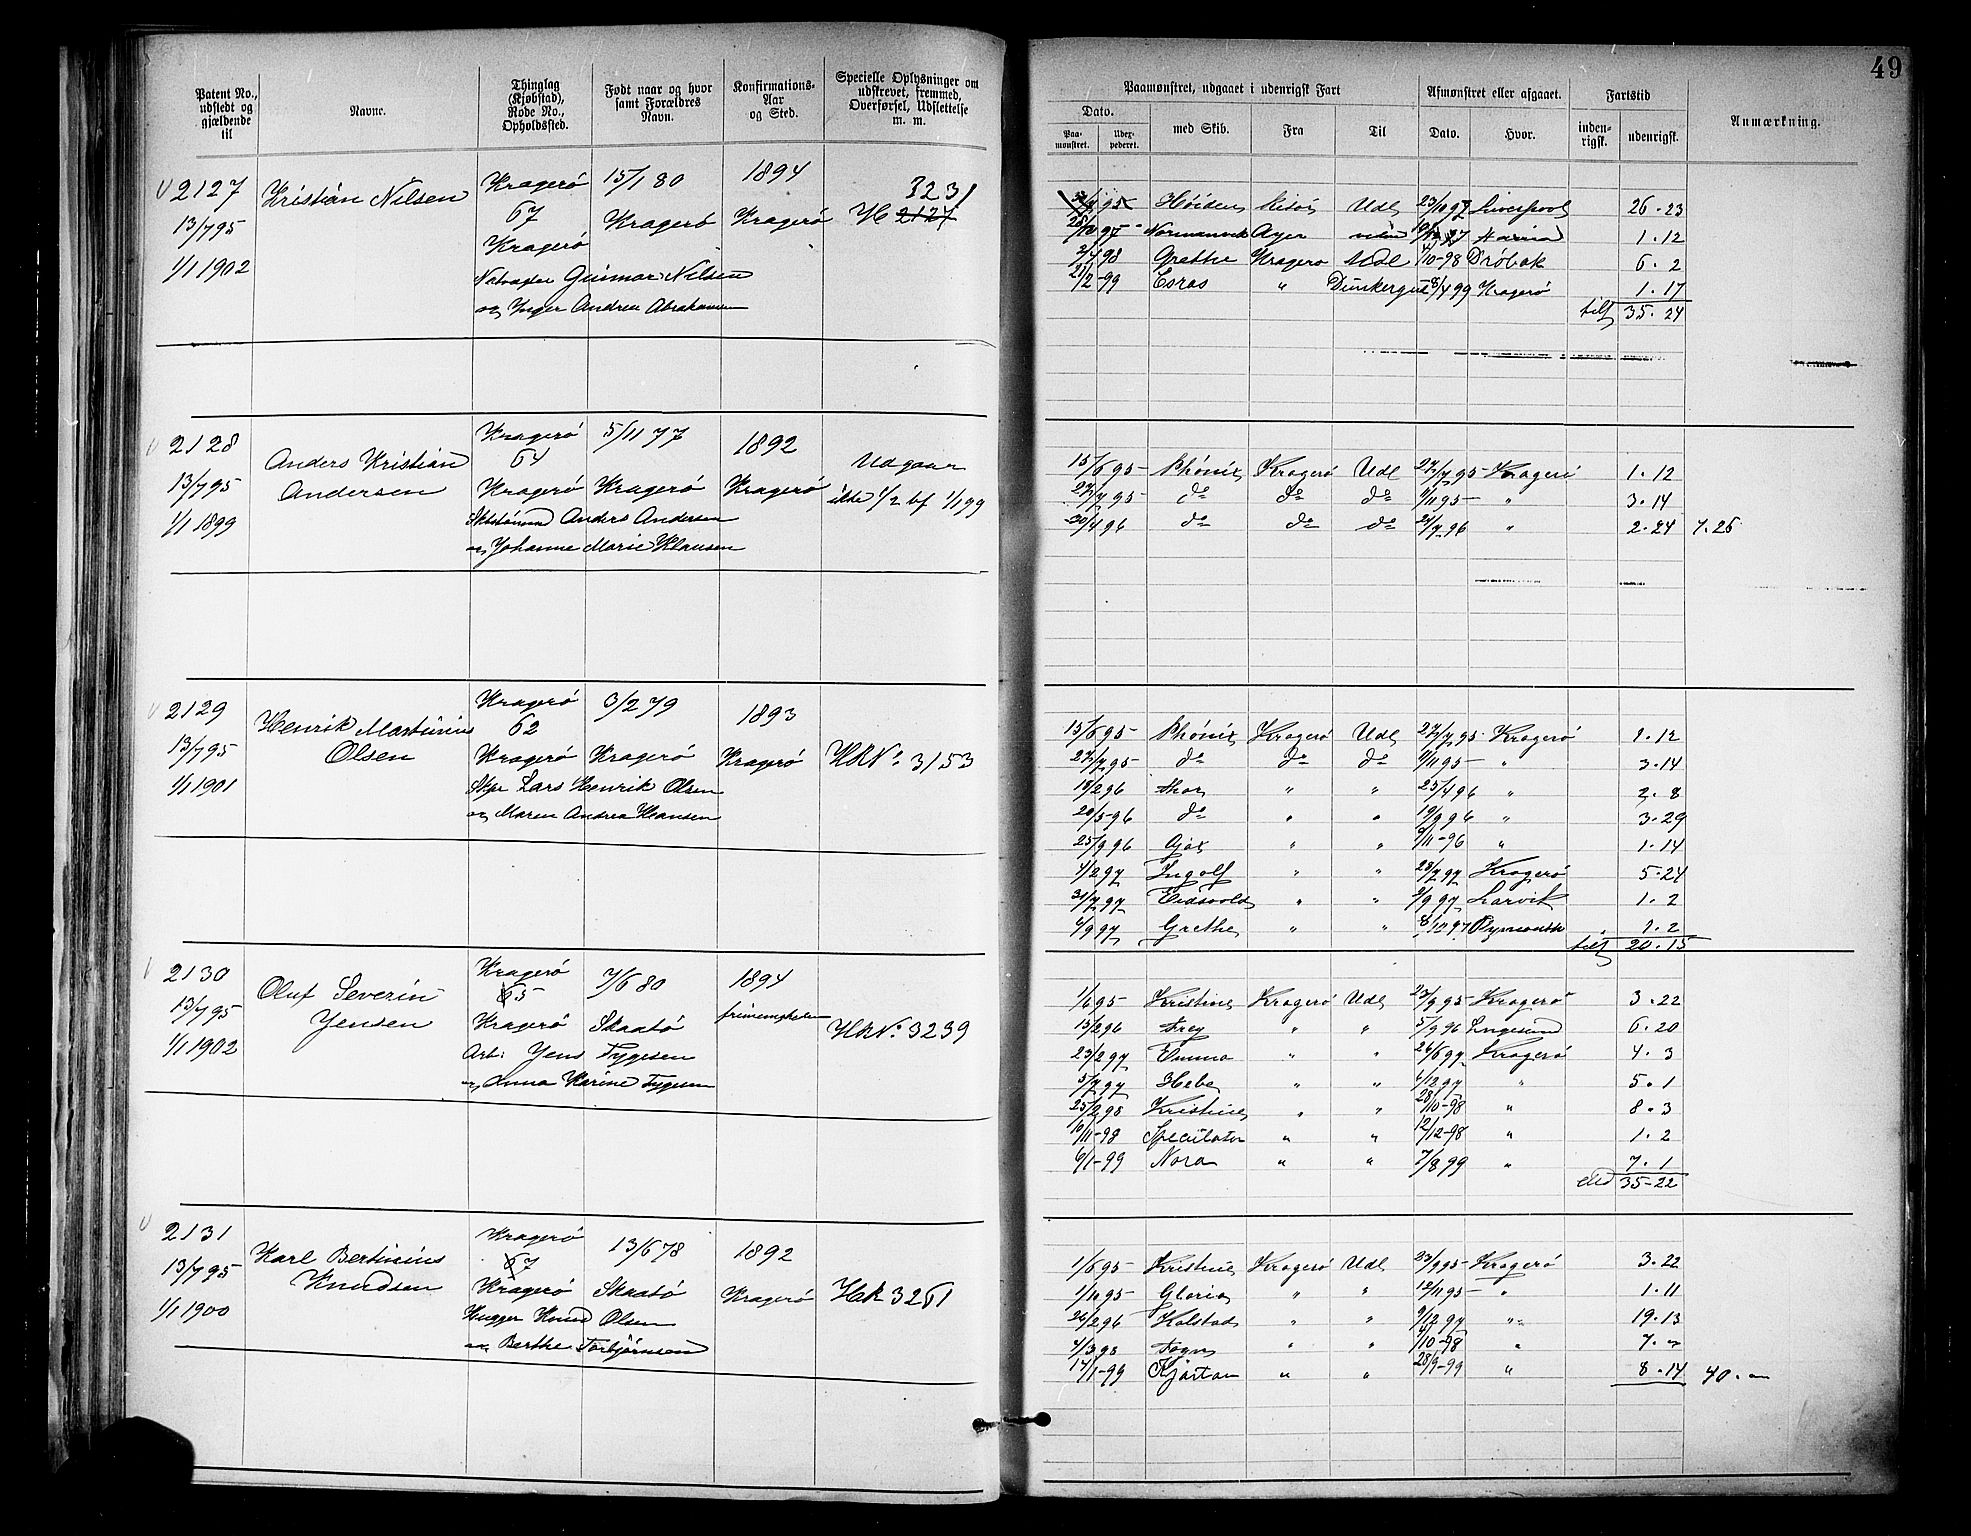 49
Patent No., udstedt og gjældende til
Navne.
Thinglag (Kjøbstad), Rode No., Opholdssted.
Født naar og hvor samt Forældres Navn.
Konfirmations-Aar og Sted.
Specielle Oplysninger om udskrevet, fremmed, Overførsel, Udslettelse m. m.
Paamønstret, udgaaet i udenrigsk Fart
Afmønstret eller afgaaet.
Fartstid
Anmærkning.
Dato.
Paa-mønstret.
Udex-pederet.
med Skib.
Fra
Til
Dato.
Hvor.
inden-rigsk.
udenrigsk.
2127 Kristian Nilsen Kragerö 15/1 80 1894 3231
13/7 95 67 Kragerö Kragerö H 2127
1/1 1902 Kragerö
Gunnar Nilsen
og Inger Andrea Abrahamsen
95 Udl Liverpool 26.23
97 1.12
98 Grethe Kragerö Udl 10-98 Dröbak 6.2
21/2-99 Esras " 8/4 99 Kragerö 1.17
tils 35.24
2128 Anders Kristian Andersen Kragerö 5/11 77 1892 Udgaar
13/7 95 64 Kragerö Kragerö Kragerö ikke 1/2 bf 1/1 99
1/1 1899 Anders Andersen
og Johanne Marie Klausen
15/6 95 Phönix Kragerö Udl 27/7 95 Kragerö 1.12
27/7 95 do do do 9/11 95 " 3.14
30/4 96 do do do 96 " 2.24 7.25
2129 Henrik Martinius Olsen Kragerö 3/2 79 1893
13/7 95 62 Kragerö Kragerö Kragerö HkNo. 3153
1/1 1901 Skpr Lars Henrik Olsen
og Maren Andrea Hansen
15/6 95 Phönix Kragerö Udl 27/7 95 Kragerö 1.12
27/7 95 do do do 9/11 95 " 3.14
18/2 96 Thor " " 25/4 96 " 2.8
20/5-96 do " " 19/9 96 " 3.29
25/9 96 Ajax " " 9/11-96 " 1.14
4/2 97 Ingolf " " 28/7 97 Kragerö 5.24
31/7 97 Eidsvold " " 2/9 97 Larvik 1.2
6/9 97 Grethe " " 8/10 97 1.2
tils 20.15
2130 Oluf Severin Jensen Kragerö 7/6 80 1894
13/7 95 65 Kragerö Skaatö HkNo. 3239
1/1 1902 Arb: Jens Tygesen
og Anna Karine Tygesen
1/6 95 Kristine Kragerö Udl 23/9 95 Kragerö 3.22
15/2 96 Frey " " 5/9 96 Langesund 6.20
23/2 97 Emma " " 26/6 97 Kragerö 4.3
5/7 97 Hebe " " 6/12 97 " 5.1
25/2 98 Kristine " " 28/10-98 " 8.3
10/11-98 Speculator " " 12/12-98 " 1.2
6/1-99 Nora " " 7/8 99 " 7.1
35-22
2131 Karl Bertinius Knudsen Kragerö 13/6 78 1892
13/7 95 67 Kragerö Skaatö Kragerö Hk 3261
1/1 1900 Hugger Knud Olsen
og Berthe Torbjörnsen
1/6 95 Kristine Kragerö Udl 23/9 95 Kragerö 3.22
1/10 95 Gloria " " 12/11 95 " 1.11
26/2 96 Kolstad " " 9/12 97 " 19.13
4/3 98 " " 10-98 " 7.-
14/1-99 Kjartan " " 28/9-99 " 8.14 40.-